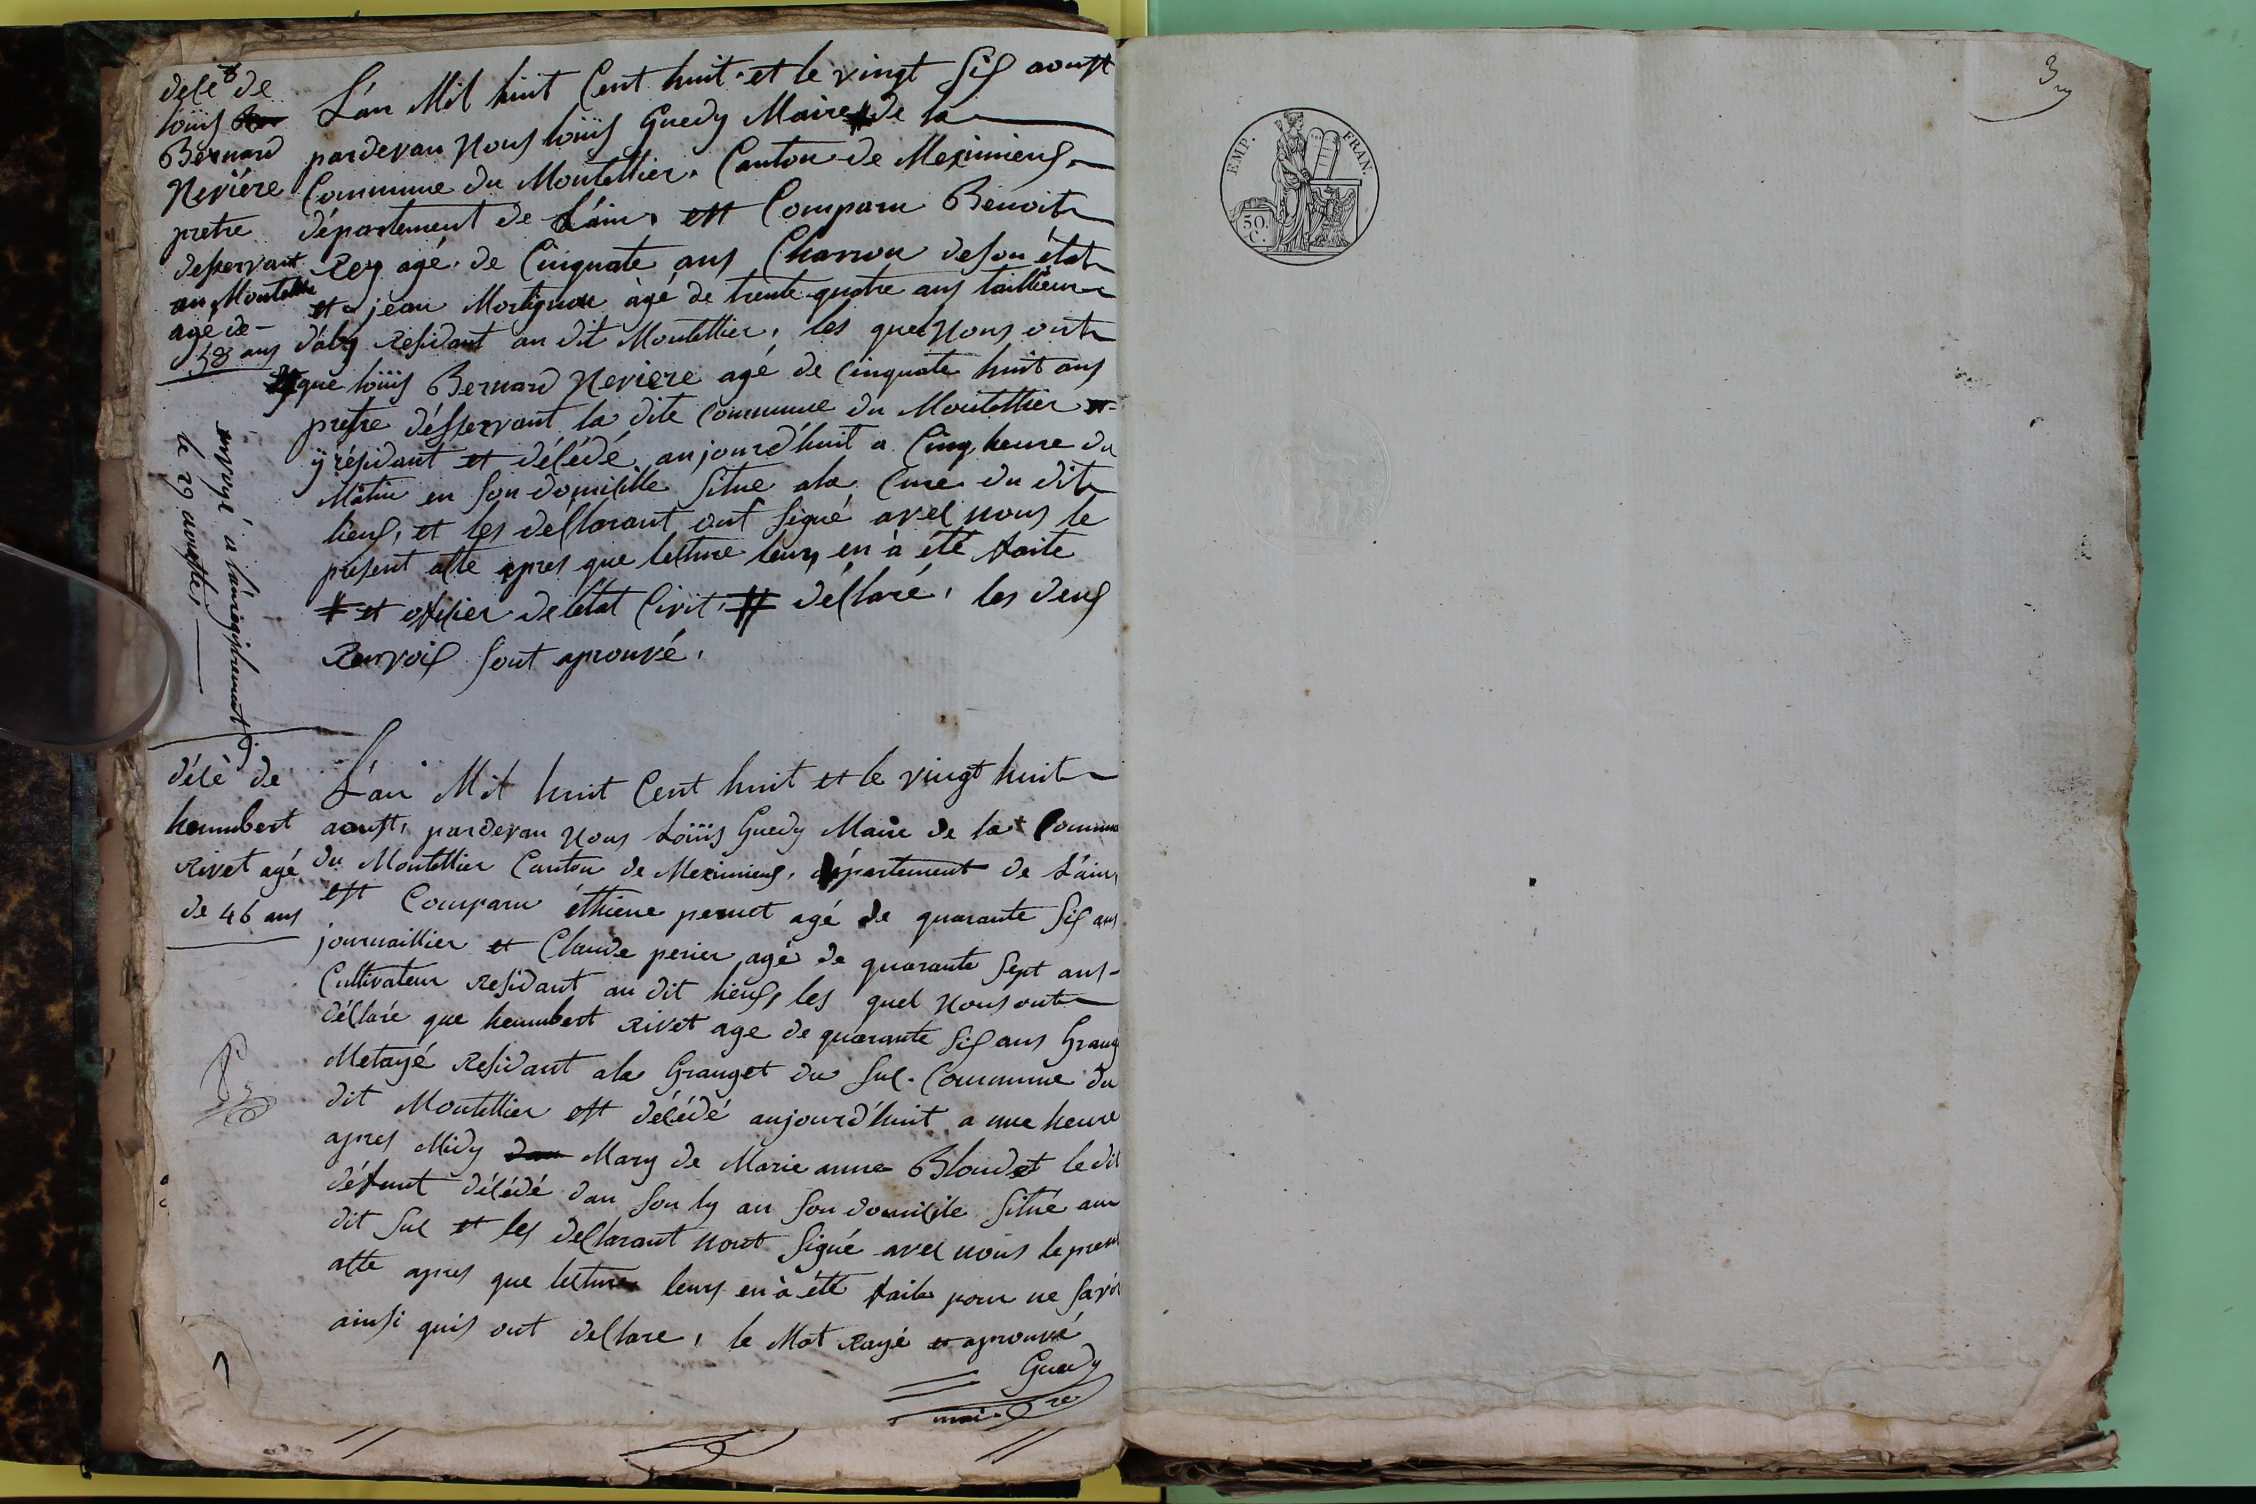 décé de
loüis
Bernard
Neviére
pretre
desservant
au Montellier
agé de
58 ans
L'an Mil huit Cent huit et le vingt six aoust
pardevan Nous loüis Guedy Maire # de la
Commune du Montellier, Canton de Meximieux
département de L'ain, est Comparu Benoit
Rey agé de Cinquate ans Charron de son état
et jean Martignon àgé de trente quatre ans tailleur
d'aby residant au dit Montellier, les quel Nous ont
# que loüis Bernard Neviere agé de Cinquate huit ans
pretre déssservant la dite Commune du Montellier et
ÿ résidant et décédé aujourd'huit a Cinq heure du
Matin en son domicille situe ala Cure du dit
lieux, et les déclarant ont signé avec nous le
présent acte apres que lecture leurs en à été faite
# et officier de létat Civit, # déclaré, les deux
Renvoix sont aprouvé,
envoyé a l'anregistrement
le 29 aoustte,
décé de
heumbert
Rivet agé
de 46 ans
L'an Mil huit Cent huit et le vingt huit
aoust, pardevan Nous Loüis Guedy Maire de la Commu
du Montellier Canton de Meximieux, département de L'ain,
est Comparu éthiene pernet agé de quarante six ans
journaillier et Claude perier agé de quarante sept ans
Cultivateur residant au dit lieux, les quel Nous ont
déclaré que heumbert Rivet age de quarante six ans Grang
Metayé residant ala Granget du Suc. Commune du
dit Montellier est décédé aujourd'huit a une heure
apres Midy Mary de Marie anne Bloudet le dit
défunt décédé dan son ly an son domicile situé au
dit Suc et les declarant nont signé avec nous le presen
atte apres que lecture leurs en à été faite pour ne savoi
ainsi quis ont declare, le Mot Rayé et aprouvé
Guedy
maire
3
EMP. FRAN.
50.
C.